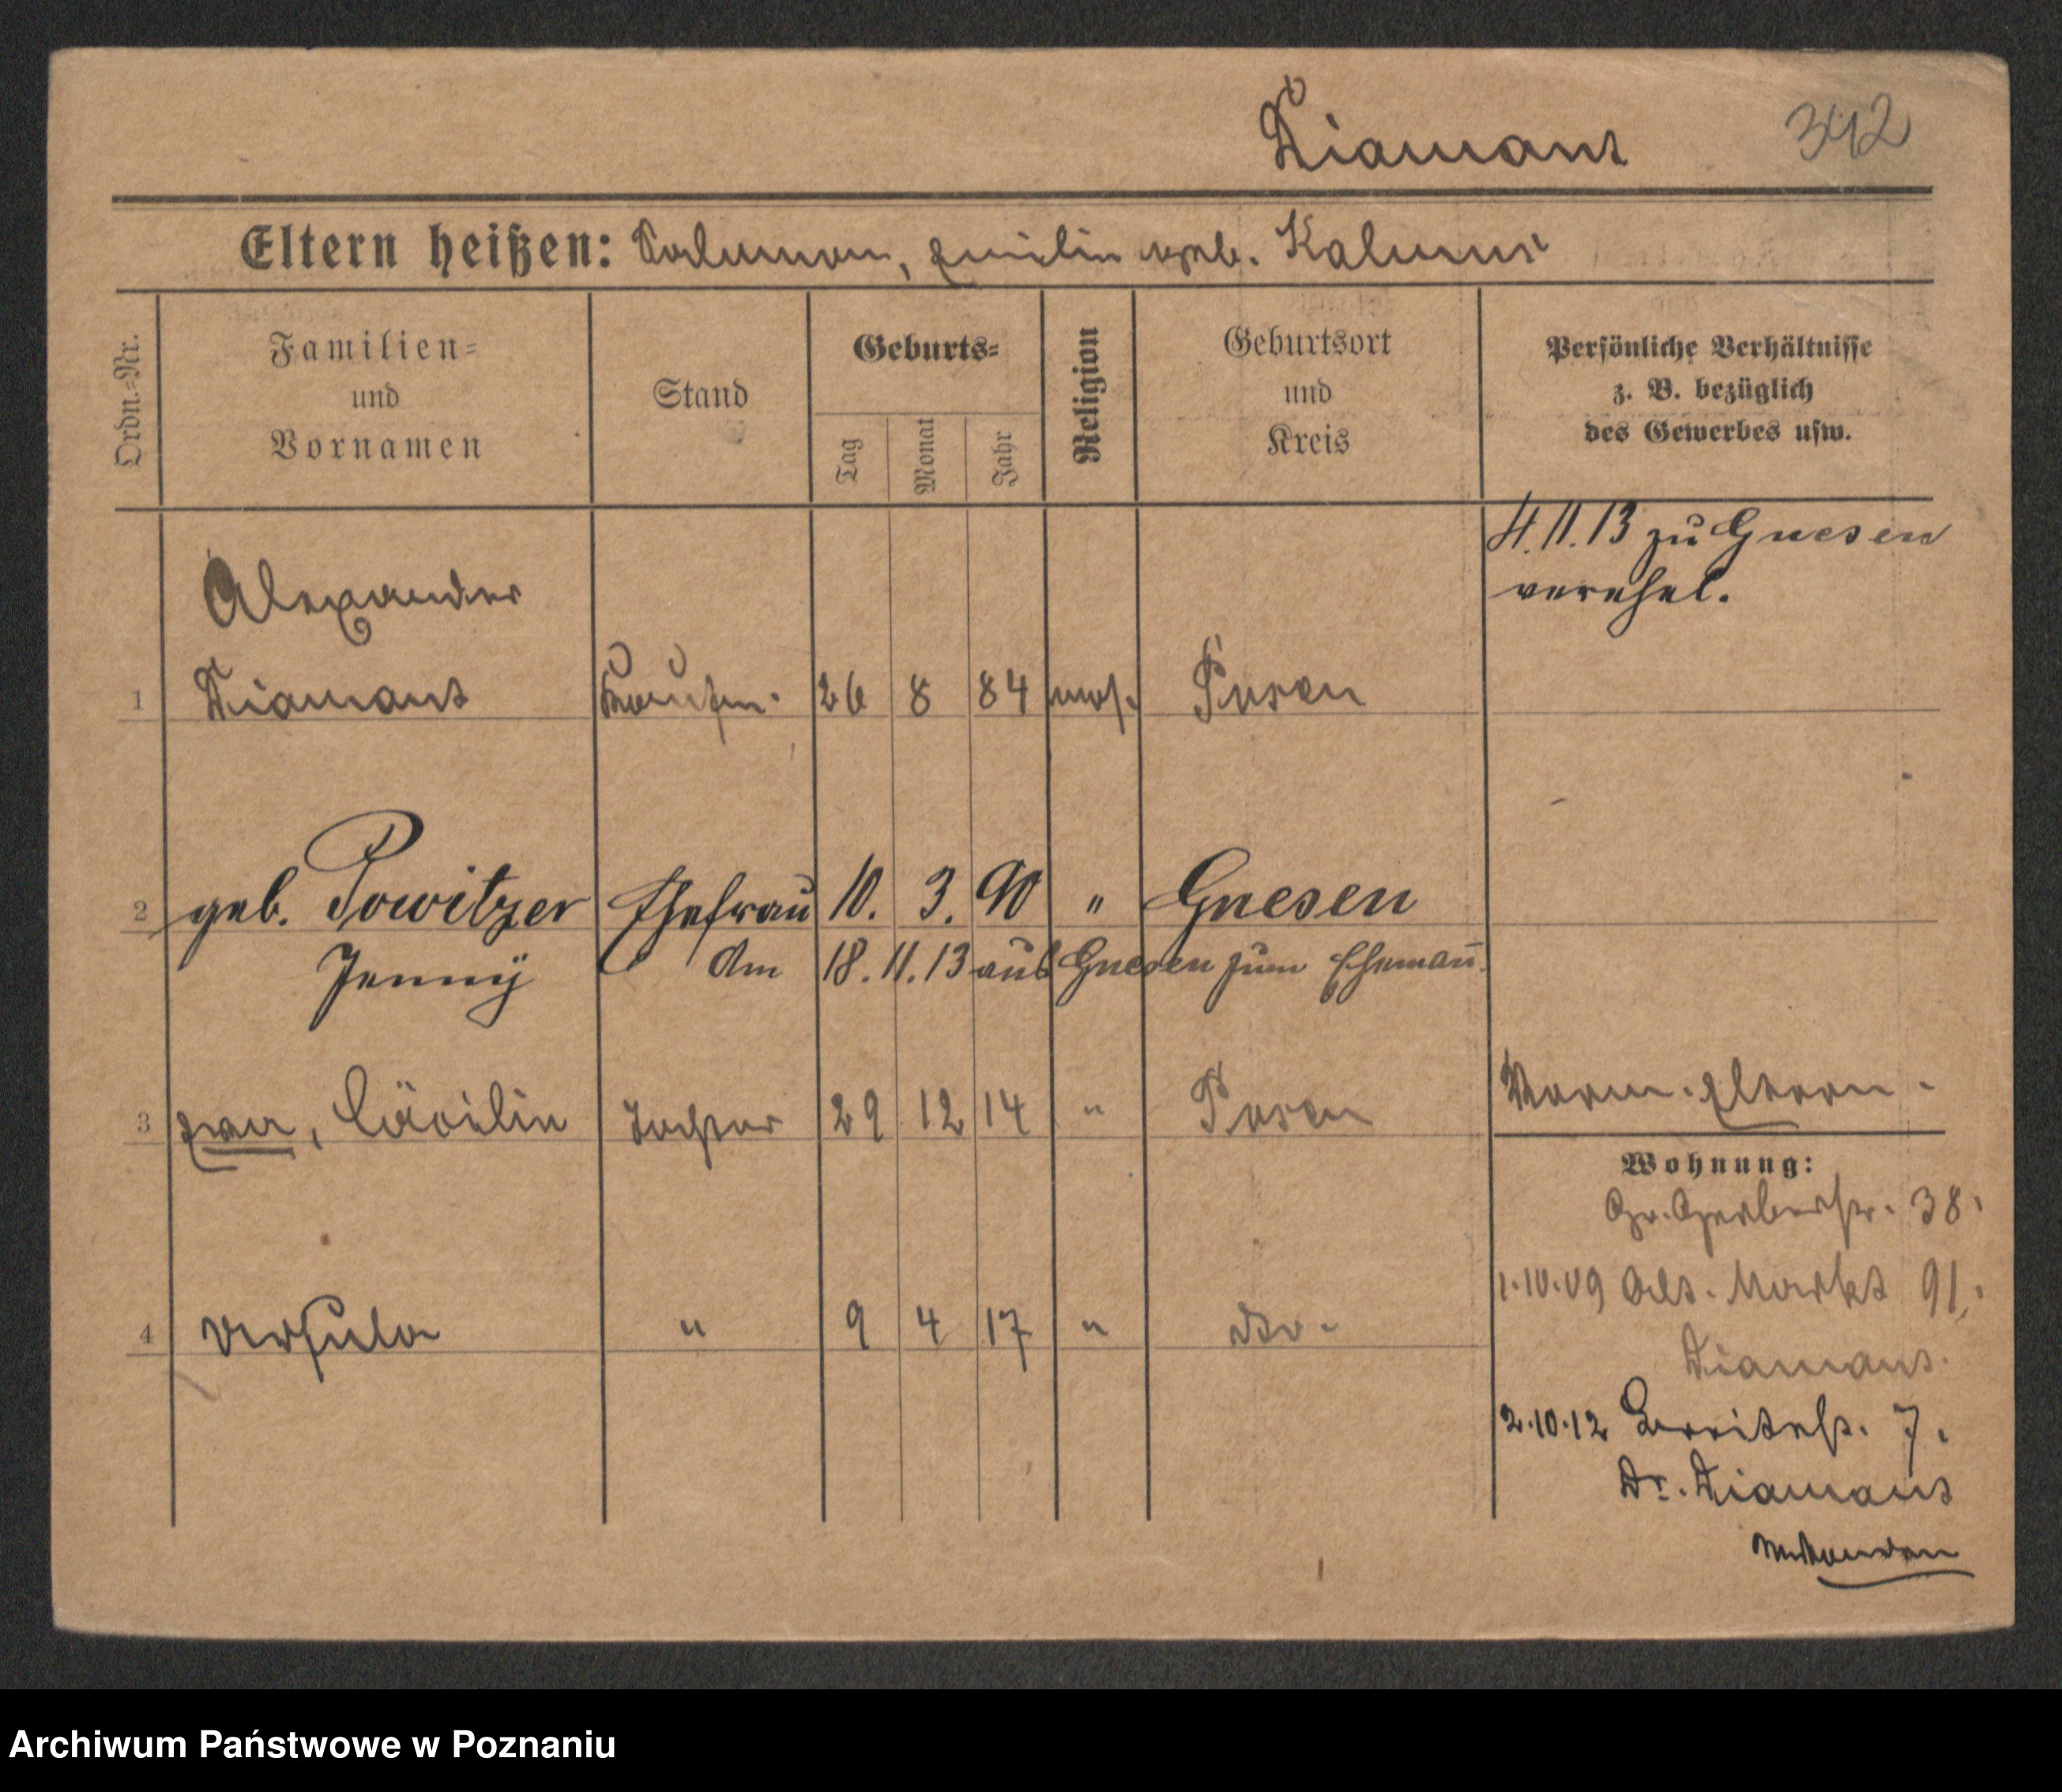 Diamant 342
Eltern heißen: Salomon, Emilie geb. Kalmus
Ordn.-Nr.
Familien-
und
Vornamen
Stand
Geburts-
Tag
Monat
Jahr
Religion
Geburtsort
und
Kreis
Persönliche Verhältnisse
z. B. bezüglich
des Gewerbes usw.
4.11.13 zu Gnesen
verehel.
Alexander
1 Diamant Kaufm. 26 8 84 mos. Posen
2 geb. Powitzer Ehefrau 10. 3. 90 " Gnesen
Jenny Am 18.11.13 aus Gnesen zum Ehemañ.
3 Eva, Cäcilie Tochter 29 12 14 " Posen
Eltern.
4 Ursula " 9 4 17 " dto.
Wohnung:
Gr. Gerberstr. 38.
1.10.09 Alt. Markt 91.
Diamant.
2.10.12 Breitestr. 7.
Dr. Diamant